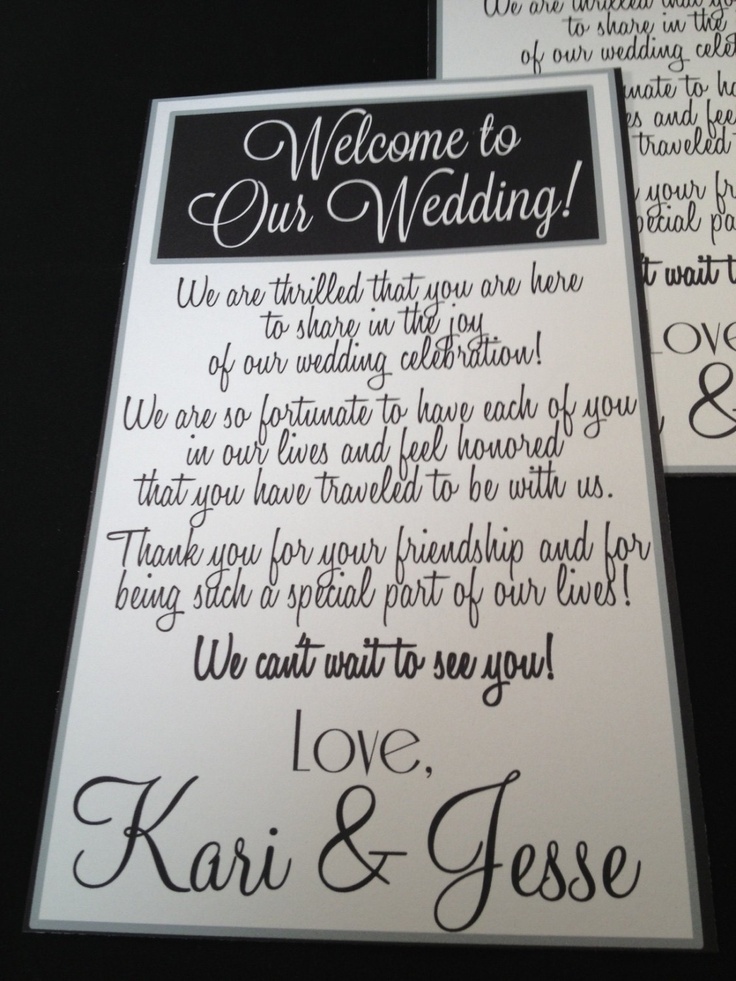 Welcome to
Our Wedding!
We are thrilled that you are here
to share in the joy
of our wedding celebration!
We are so fortunate to have each of you
in our lives and feel honored
that you have traveled to be with us.
Thank you for your friendship and for
being such a special part of our lives!
We can't wait to see you!
Love,
Kari & Jesse
We are thrilled that
to share in the
of our wedding
to
and
traveled
your
wait
&